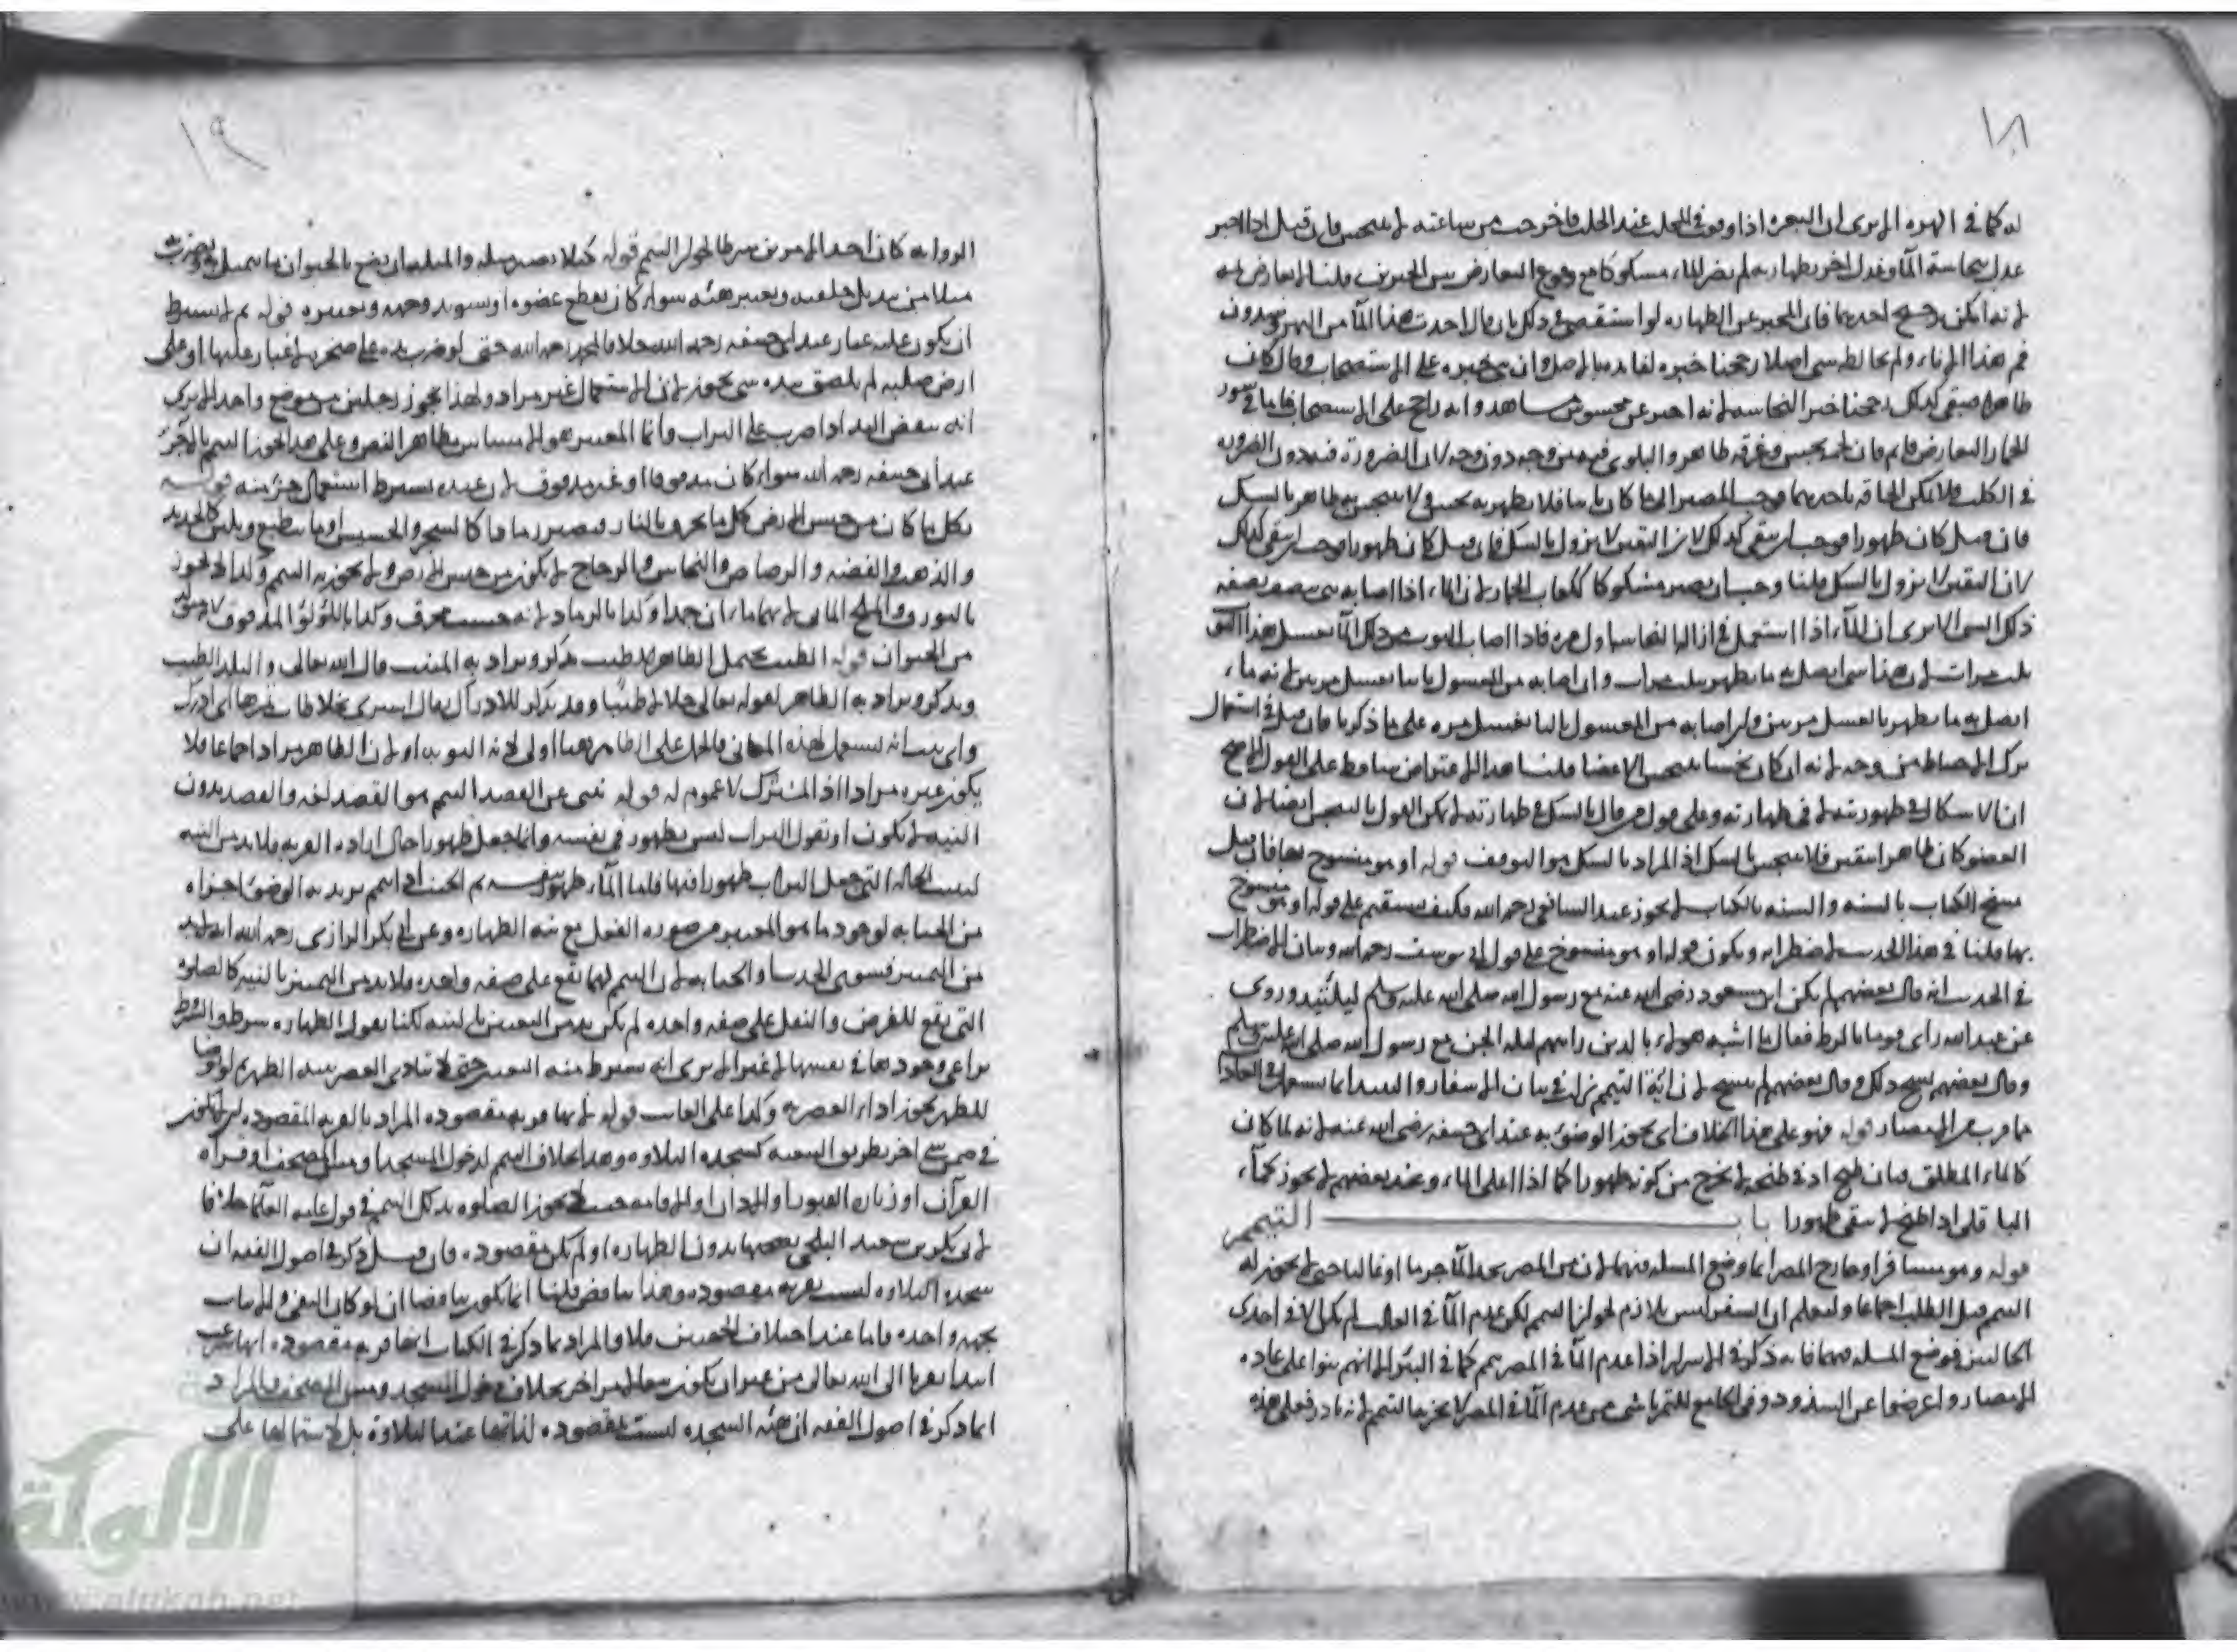 ١٨
له كما في الهرة الا يرى ان البعرة اذا وقعت في المحلب عند الحلب فاخرجت من ساعته لا يتنجس فان قيل اذا اخبر
عدل بنجاسة الماء وعدل اخر بطهارته لم يصر الماء مشكوكا مع وقوع التعارض بين الخبرين قلنا لا تعارض ثمه
لانه امكن ترجيح احدهما فان المخبر عن الطهارة لو استقصى في ذلك بان قال اخذت هذا الماء من النهر
في هذا الاناء ولم يخالطه شي اصلا رجحنا خبره لتايده بالاصل وان بنى خبره على الاستصحاب وقال كان
طاهرا فبقي كذلك رجحنا خبر النجاسة لانه اخبر عن محسوس مشاهد وانه راجح على الاستصحاب فاما في سور
الحمار التعارض قايم فان لحمه نجس وعرقه طاهر والبلوى فيه من وجه دون وجه لان الضرورة فيه دون الضرورة
في الكلب فلا يمكن الحاقه باحدهما فوجب المصير الى ما كان ثابتا فلا يطهر به نجس ولا يتنجس به طاهر بالشك
فان قيل كان طهورا فوجب ان يبقى كذلك لان اليقين لا يزول بالشك
لان اليقين لا يزول بالشك قلنا وجب ان يصير مشكوكا كلعاب الحمار لان الماء اذا اصابه شي يتصف بصفة
ذلك الشي الا يرى ان الماء اذا استعمل في ازالة النجاسة اول مرة فاذا اصاب الثوب من ذلك الماء يغسل هذا الثوب
ثلث مرات لان هذا شي اتصل به ما يطهر بثلث مرات وان اصابه من المغسول ثانيا يغسل مرتين لانه ماء
اتصل به ما يطهر بالغسل مرتين وان اصابه من المغسول ثالثا يغسل مرة على ما ذكرنا فان قيل في استعمال
ترك الاحتياط من وجه لانه ان كان نجسا يتنجس الاعضا قلنا هذا الاعتراض ساقط على القول الاصح
ان الاشكال في طهوريته لا في طهارته وعلى قول من قال بالشك في طهارته لا يمكن القول بالتنجس ايضا لان
العضو كان طاهرا بيقين فلا يتنجس بالشك اذ المراد بالشك هو التوقف قوله او هو منسوخ بها فان قيل
نسخ الكتاب بالسنة والسنة بالكتاب لا يجوز عند الشافعي رحمه الله فكيف يستقيم على قوله او هو منسوخ
بها قلنا في هذا الحديث اضطراب ويكون قوله او هو منسوخ على قول ابي يوسف رحمه الله وبيان الاضطراب
في الحديث انه قال بعضهم لم يكن ابن مسعود رضي الله عنه مع رسول الله صلى الله عليه وسلم ليلتئذ وروى
عن عبد الله راى قوما بالزط فقال ما اشبه هؤلاء بالذين رايتهم ليلة الجن مع رسول الله صلى الله عليه وسلم
وقال بعضهم نسخ ذلك وقال بعضهم لم ينسخ لان اية التيمم نزل في بيان الاسفار والنبيذ انما يستعمل في العادة
فيما قرب من الامصار قوله فهو على هذا الخلاف اي يجوز الوضوء به عند ابي حنيفة رضي الله عنه لانه لما كان
كالماء المطلق فبان طبخ ادنى طبخة لا يخرج من كونه طهورا كما اذا اغلى الماء وعند بعضهم لا يجوز كماء
الباقلى اذا طبخ لا يبقى طهورا باب التيمم
قوله وهو مسافر او خارج المصر انما وضع المسلة فيهما لان من في المصر يجد الماء جريا او غالبا حتى لا يجوز له
التيمم قبل الطلب اجماعا وليعلم ان السفر ليس بلازم لجواز التيمم لكن عدم الماء في الغالب لم يكن الا في احدى
الحالتين فوضع المسلة فيهما فانه ذكر في الاسرار اذا عدم الماء في المصر تيمم كما في البئر الا انهم بنوا على عادة
الامصار واعرضوا عن الشذوذ وفي الجامع للتمرتاشي من عدم الماء في المصر لا يجزيه التيمم لانه نادر فعلى هذه
١٩
الرواية كان احد الامرين شرطا لجواز التيمم قوله كيلا يصير مثله والمثلة ان يصنع بالحيوان ما
مثلا من تبديل خلقته وتغيير هيئته سواء كان بقطع عضوه او تسويد وجهه وتغييره قوله ثم لا يشترط
ان يكون عليه غبار عند ابي حنيفة رحمه الله خلافا لمحمد رحمه الله حتى لو ضرب يده على صخرة لا غبار عليها او على
ارض صلبة لم يلصق بيده شي يجوز لان الاستعمال غير مراد ولهذا يجوز رجلين من موضع واحد الا يرى
انه ينفض اليد اذا ضرب على التراب وانما المعتبر هو الامساس بظاهر النص وعلى هذا يجوز التيمم بالآجر
عند ابي حنيفة رحمه الله سواء كان مدقوقا او غير مدقوق لان عنده يشترط استعمال جزء منه قوله
بكل ما كان من جنس الارض فكل ما يحرق بالنار فيصير رمادا كالشجر والحشيش او ما ينطبع ويلين كالحديد
والذهب والفضة والرصاص والنحاس والزجاج لا يكون من جنس الارض ولا يجوز به التيمم وكذا لا يجوز
بالنورة والملح المائي لانهما ماءان جمدا وكذا بالرماد لانه خشب محرق وكذا باللؤلؤ المدقوق لانه متولد
من الحيوان قوله الطيب يحتمل الطاهر الطيب يذكر ويراد به المنبت قال الله تعالى والبلد الطيب
ويذكر ويراد به الطاهر لقوله تعالى حلالا طيبا وقد يذكر للادراك يقال
واي يثبت انه يستعمل لهذه المعاني فالحمل على الطاهر ههنا اولى لانه اليق به او لان الطاهر مراد اجماعا فلا
يكون غيره مرادا اذ المشترك لا عموم له قوله ينبي عن القصد التيمم هو القصد لغة والقصد بدون
النية لا يكون او نقول التراب ليس بطهور في نفسه وانما جعل طهورا حال ارادة القربة فلا بد من النية
ليثبت الحالة التي جعل التراب طهورا فيها فاما الماء طهور بنفسه ثم الجنب اذا تيمم يريد به الوضوء اجزاه
من الجنابة لوجود ما هو المعتبر من صورة الفعل مع نية الطهارة وعن ابي بكر الرازي رحمه الله انه لا بد
من التمييز فينوي الحدث او الجنابة لان التيمم لهما يقع على صفة واحدة فلا بد من التمييز بالنية كالصلوة
التي تقع للفرض والنفل على صفة واحدة لم يكن بد من التعيين بالنية لكنا نقول الطهارة شرط والشرط
يراعى وجودها في نفسها لا غير الا يرى انه يشترط منه التعيين حتى لا يتادى العصر بنية الظهر ثم لو توضا
للظهر يجوز اداء العصر به وكذا على القلب قوله لانها قربة مقصودة المراد بالقربة المقصودة ان لا تكون
في ضمن شي اخر بطريق التبعية كسجدة التلاوة وهذا بخلاف التيمم لدخول المسجد او مس المصحف او قراة
القرآن او زيارة القبور او الاذان او الاقامة حيث لا يجوز الصلوة بذلك التيمم في قول عامة العلما خلافا
لابي بكر بن سعيد البلخي لصحتها بدون الطهارة او لم تكن مقصودة فان قيل ذكر في اصول الفقه ان
سجدة التلاوة ليست بقربة مقصودة وهذا يناقض قلنا انما يكون تناقضا ان لو كان النفي والاثبات
بجهة واحدة فاما عند اختلاف الجهتين فلا والمراد بما ذكر في الكتاب انها قربة مقصودة انها شرعت
ابتدا تقربا الى الله تعالى من غير ان يكون تبعا لامر اخر بخلاف دخول المسجد ومس المصحف والمراد
بما ذكر في اصول الفقه ان هيئة السجدة ليست بمقصودة لذاتها عند التلاوة بل لاشتمالها على
الألوكة
www.alukah.net